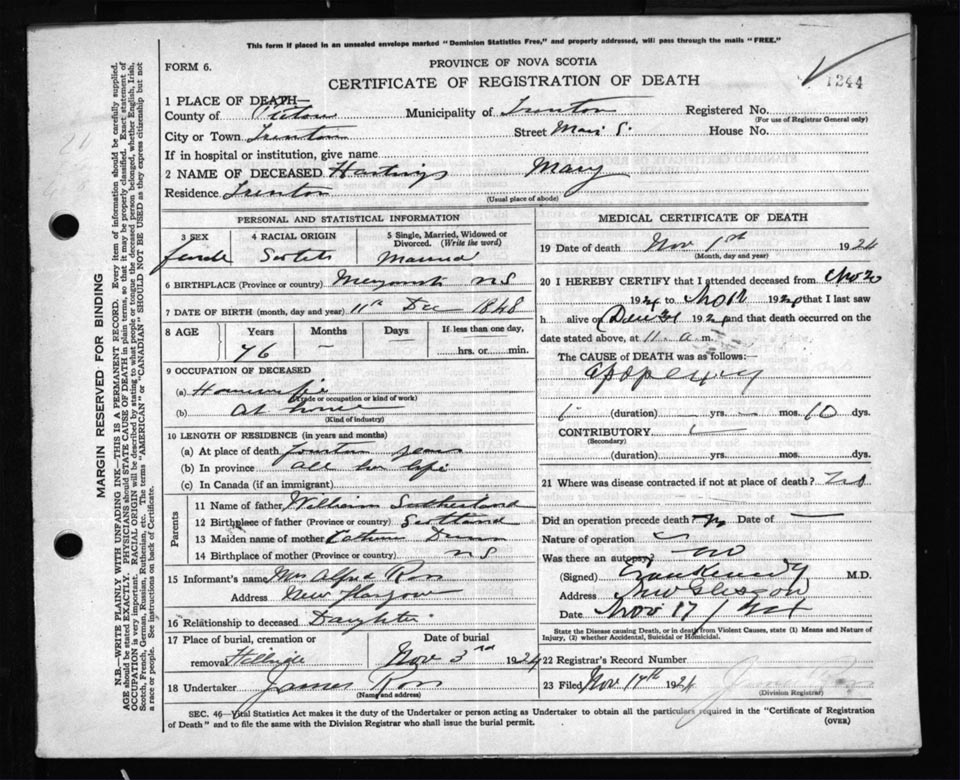 This form if placed in an unsealed envelope marked "Dominion Statistics Free," and properly addressed, will pass through the mails "FREE."
FORM 6.
PROVINCE OF NOVA SCOTIA
CERTIFICATE OF REGISTRATION OF DEATH
1244
1 PLACE OF DEATH—
County of Pictou Municipality of Trenton Registered No.
(For use of Registrar General only)
City or Town Trenton Street Main S. House No.
If in hospital or institution, give name
2 NAME OF DECEASED Hastings Mary
Residence Trenton
(Usual place of abode)
PERSONAL AND STATISTICAL INFORMATION
3 SEX 4 RACIAL ORIGIN 5 Single, Married, Widowed or Divorced. (Write the word)
female Scotch Married
6 BIRTHPLACE (Province or country) NS
7 DATE OF BIRTH (month, day and year) 11th Dec 1848
8 AGE Years Months Days If less than one day,
76 — — hrs. or min.
9 OCCUPATION OF DECEASED
(a) Housewife
(Trade or occupation or kind of work)
(b) At home
(Kind of industry)
10 LENGTH OF RESIDENCE (in years and months)
(a) At place of death fourteen years
(b) In province all her life
(c) In Canada (if an immigrant)
Parents
11 Name of father William Sutherland
12 Birthplace of father (Province or country) Scotland
13 Maiden name of mother Cathrine Dunn
14 Birthplace of mother (Province or country) NS
15 Informant's name Mrs Ross
Address New Glasgow
16 Relationship to deceased Daughter
17 Place of burial, cremation or removal Hillside
Date of burial Nov 3rd 1924
18 Undertaker James Ross
(Name and address)
MEDICAL CERTIFICATE OF DEATH
19 Date of death Nov 1st 1924
(Month, day and year)
20 I HEREBY CERTIFY that I attended deceased from
1924 to 1924 that I last saw
h alive on 1924 and that death occurred on the
date stated above, at 11 a.m.
The CAUSE of DEATH was as follows:
apoplexy
(duration) — yrs. — mos. 10 dys.
CONTRIBUTORY
(Secondary)
(duration) yrs. mos. dys.
21 Where was disease contracted if not at place of death?
Did an operation precede death? no Date of —
Nature of operation
Was there an autopsy? no
(Signed) Kennedy M.D.
Address New Glasgow
Date Nov 17
State the Disease causing Death, or in death from Violent Causes, state (1) Means and Nature of Injury, (2) whether Accidental, Suicidal or Homicidal.
22 Registrar's Record Number
23 Filed Nov 17th 1924
(Division Registrar)
SEC. 46—Vital Statistics Act makes it the duty of the Undertaker or person acting as Undertaker to obtain all the particulars required in the "Certificate of Registration
of Death" and to file the same with the Division Registrar who shall issue the burial permit.
(OVER)
MARGIN RESERVED FOR BINDING
N.B.—WRITE PLAINLY WITH UNFADING INK—THIS IS A PERMANENT RECORD. Every item of information should be carefully supplied.
AGE should be stated EXACTLY. PHYSICIANS should STATE CAUSE OF DEATH in plain terms, so that it may be properly classified. Exact statement of
OCCUPATION is very important. RACIAL ORIGIN will be described by stating to what people or tongue the deceased person belonged, whether English, Irish,
Scotch, French, German, Russian, Ruthenian, etc. The terms "AMERICAN" or "CANADIAN" SHOULD NOT BE USED as they express citizenship but not
a race or people. See instructions on back of Certificate.